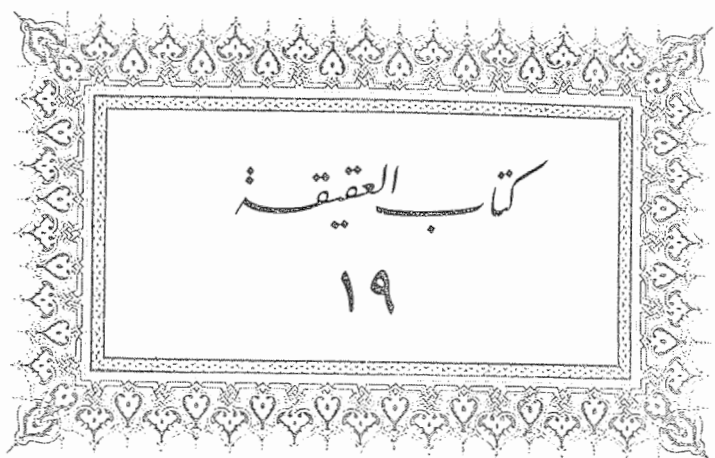 كتاب العقيقة
١٩